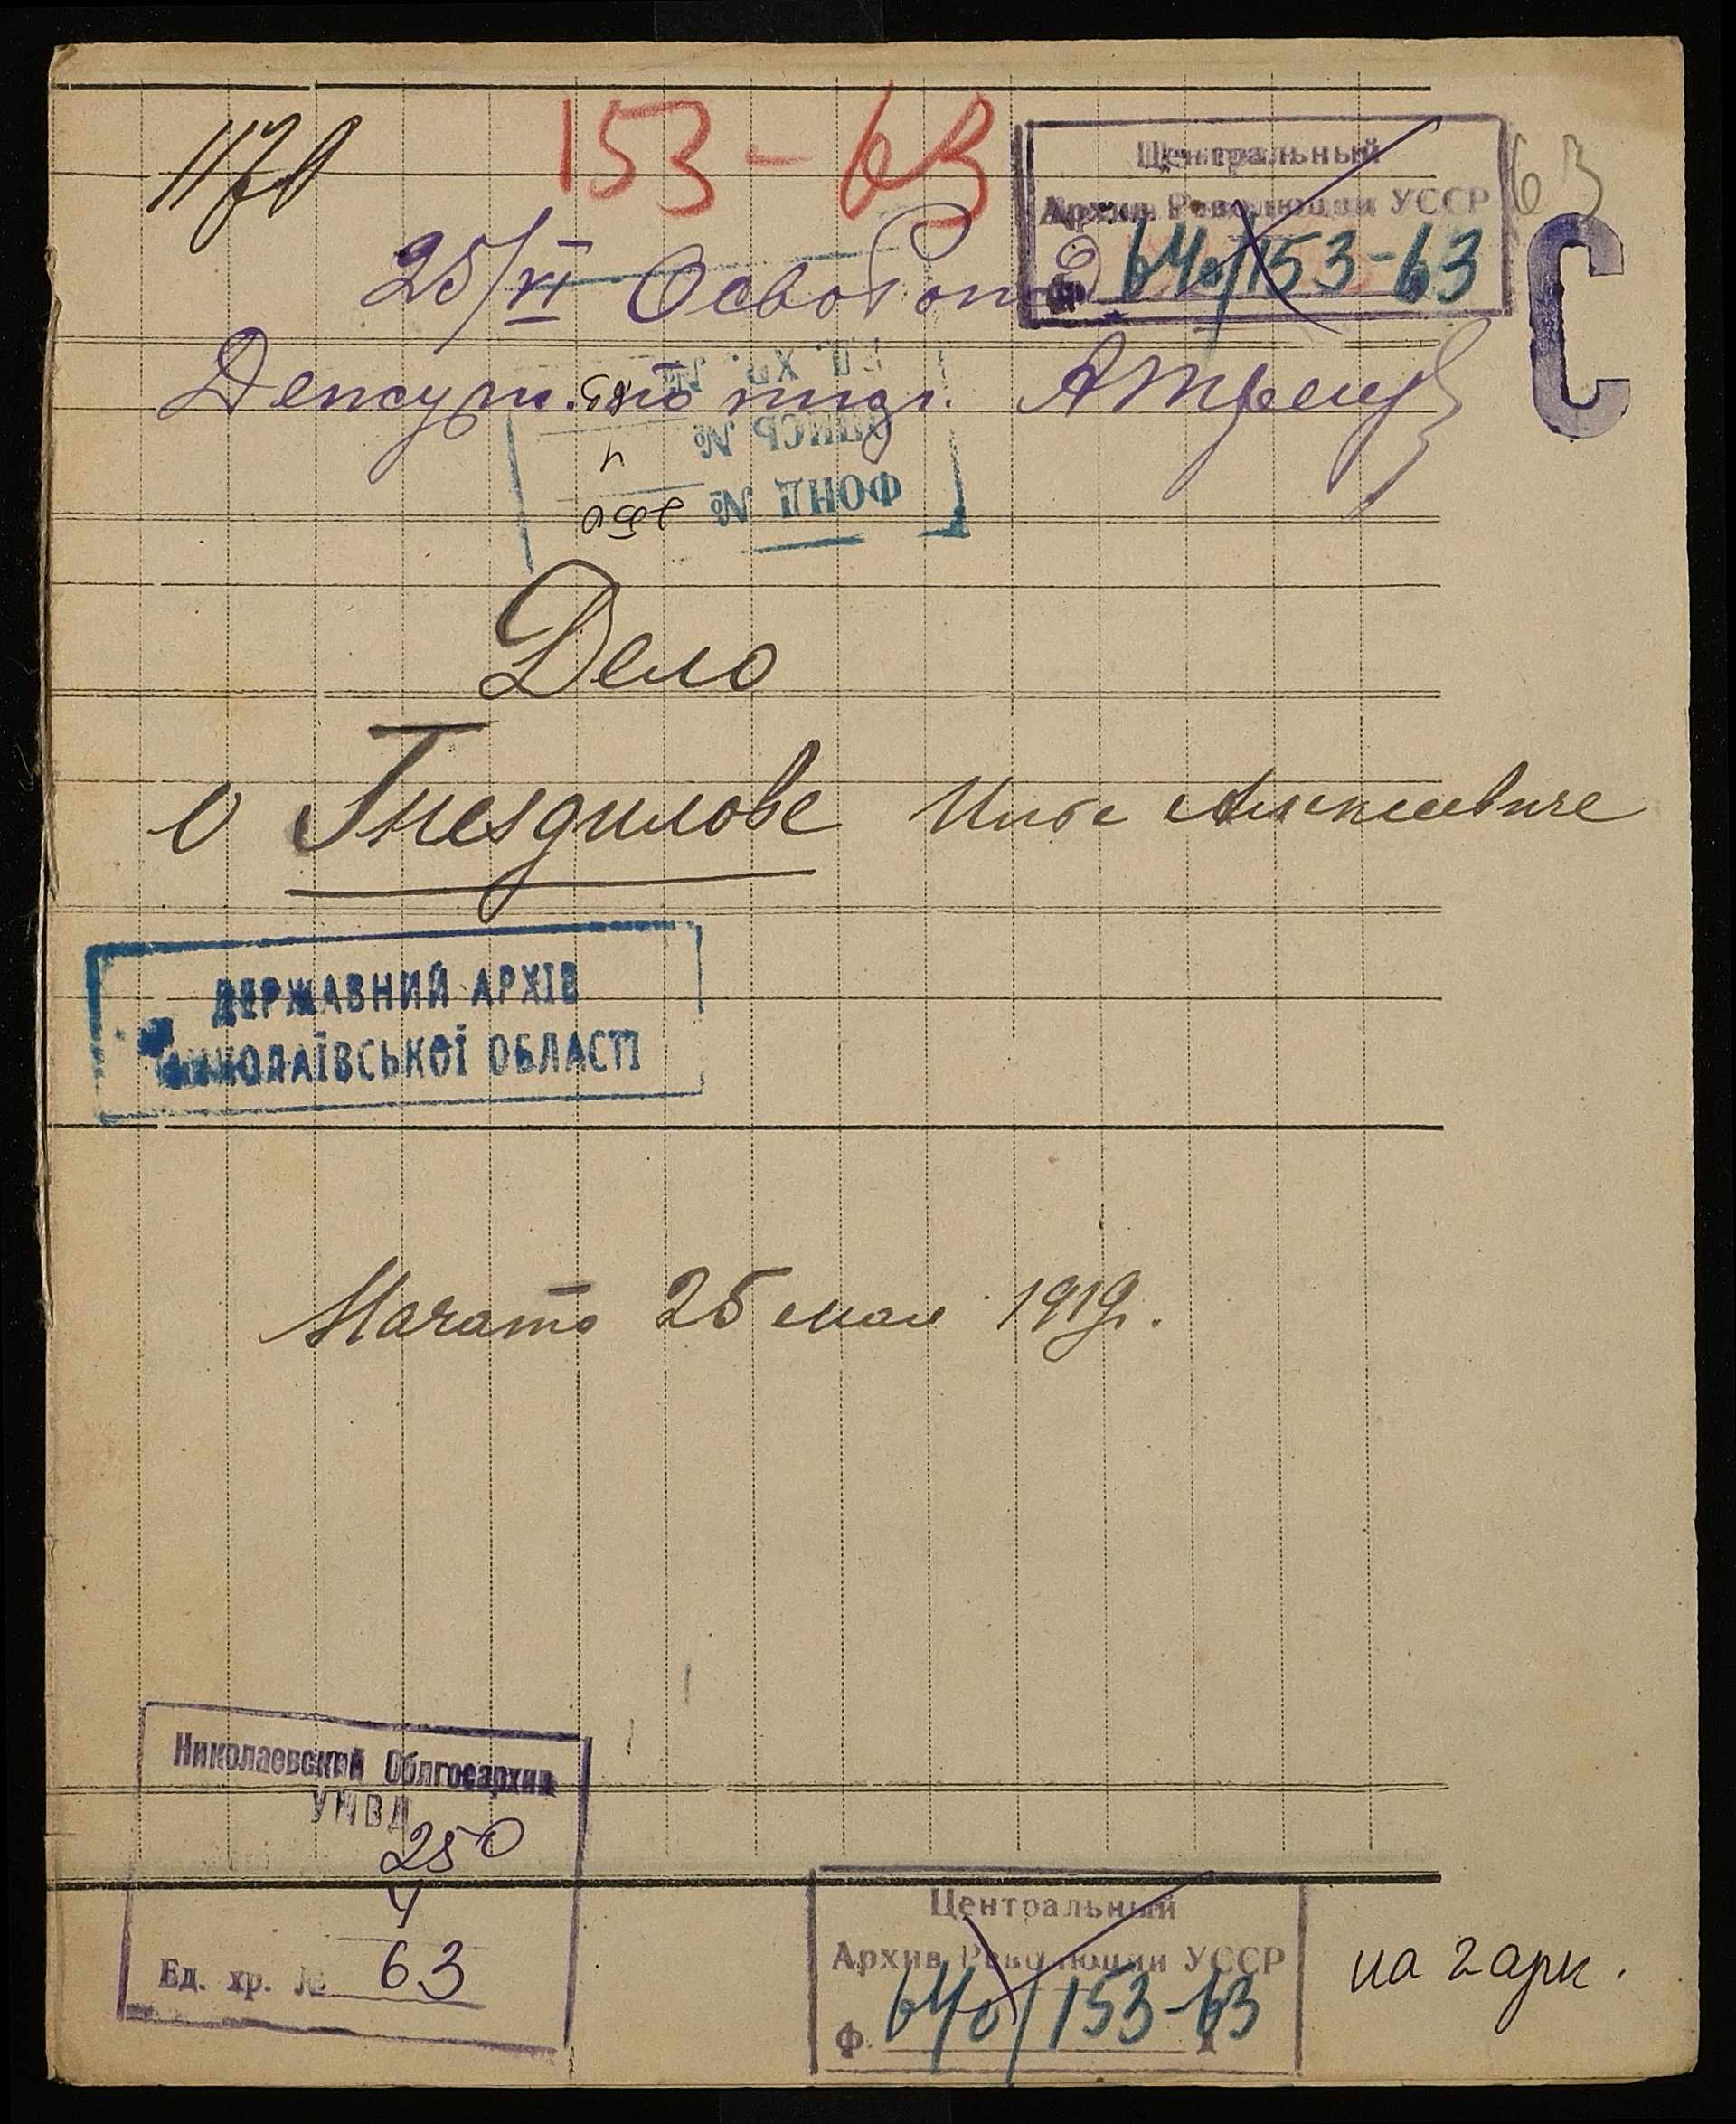 153-63
63
Центральный
Архив Революции УССР
640/153-63
С
25/VI Освобожд
Дежурн. по
ФОНД № 250
ОПИСЬ № 4
ЕД. ХР. № 63
Дело
о Гнездилове Илье Алексеевиче
ДЕРЖАВНИЙ АРХІВ
МИКОЛАЇВСЬКОЇ ОБЛАСТІ
Начато 25 мая 1919г.
Николаевский Облгосархив
УНВД
250
4
Ед. хр. № 63
Центральный
Архив Революции УССР
ф. 640/153-63
на 2 арк.